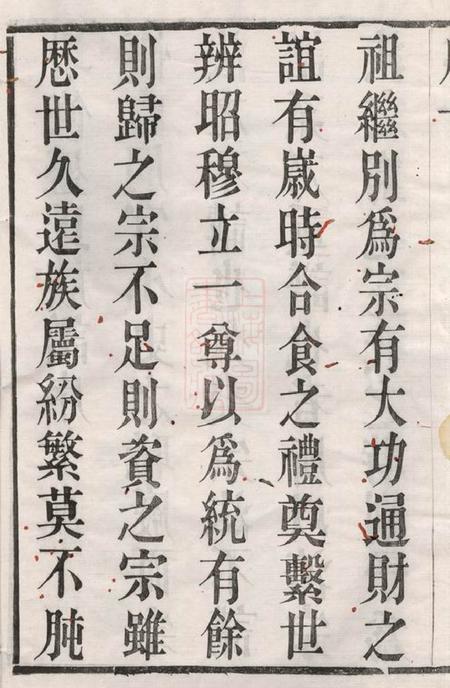 祖繼別爲宗有大功通財之
誼有歲時合食之禮奠繫世
辨昭穆立一尊以爲統有餘
則歸之宗不足則資之宗雖
歷世久遠族屬紛繁莫不肫